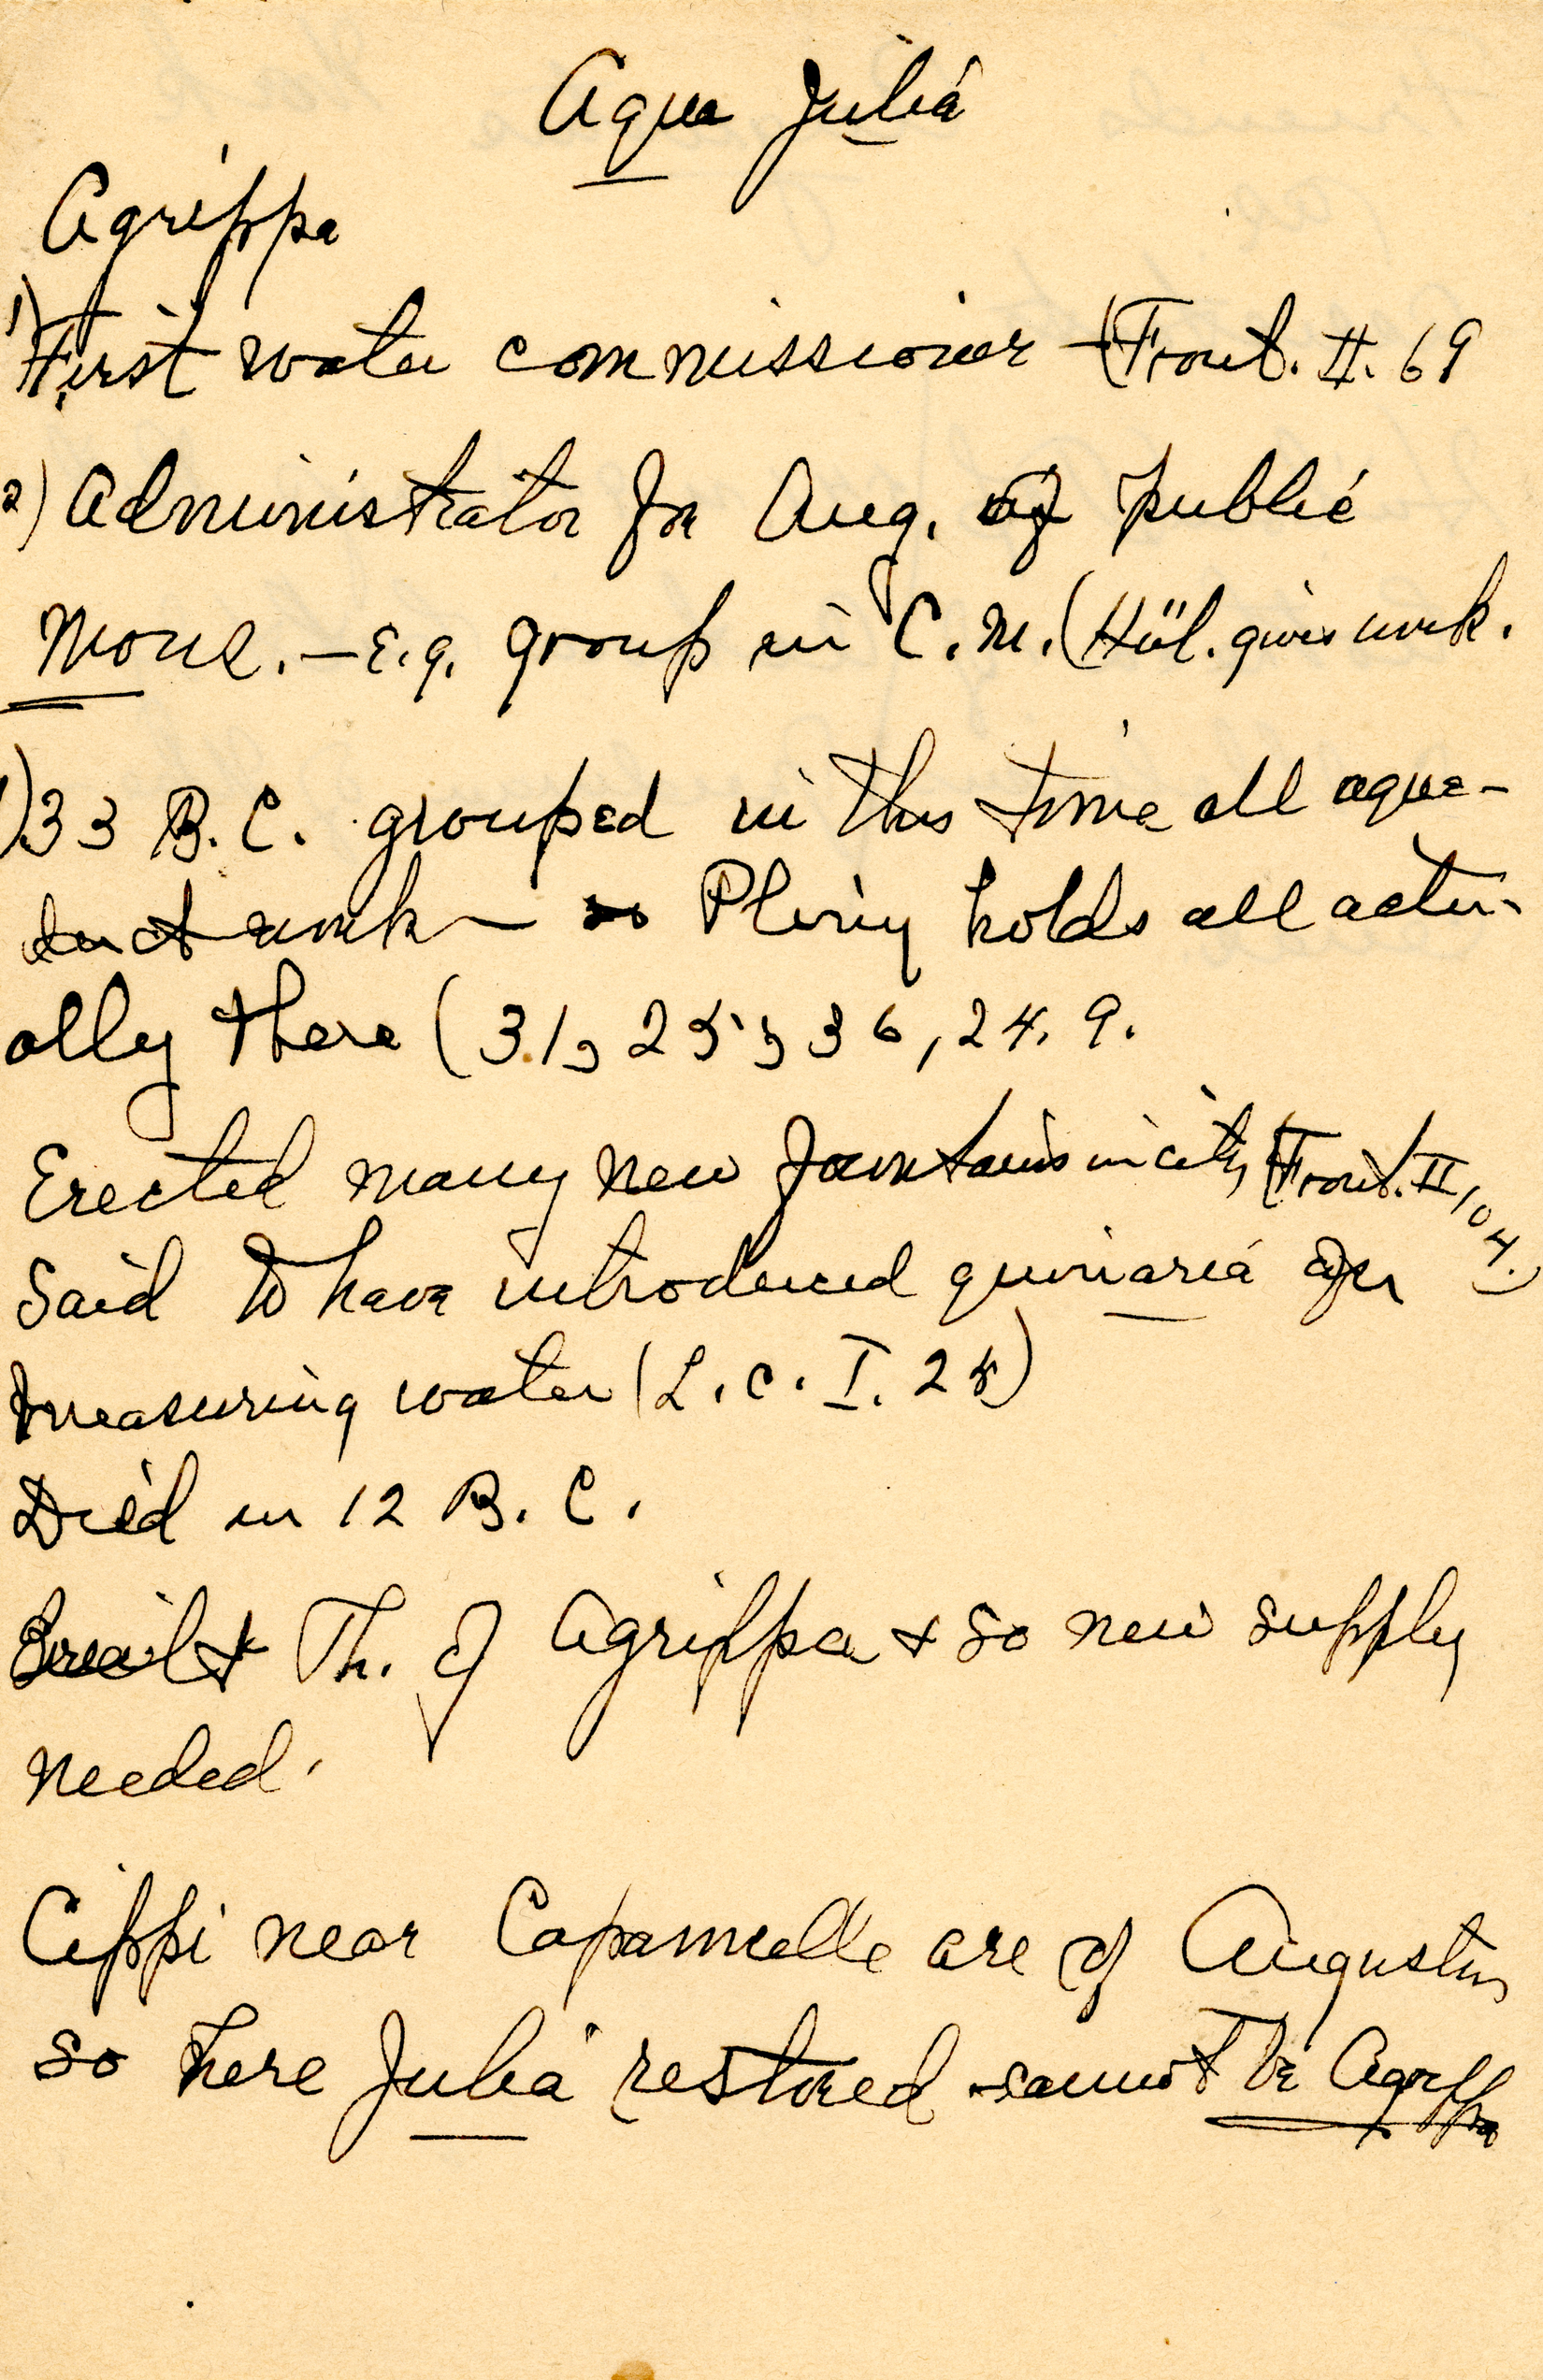 Aqua Julia
Agrippa
1) First water commissioner - (Front. II. 69
2) Administrator for Aug. of public
Mons. - E.g. group in C. M. (Hül. gives work.
1) 33 B. C. grouped in this time all aque-
duct work - so Pliny holds all actu-
ally there (31, 25; 36, 24. 9.
Erected many new fountains in city (Front. II, 104.)
Said to have introduced quinaria for
measuring water (L. c. I. 25)
Died in 12 B. C.
Built Th. of Agrippa + so new supply
needed.
Cippi near Capannelle are of Augustus
so here Julia restored cannot be Agrippa